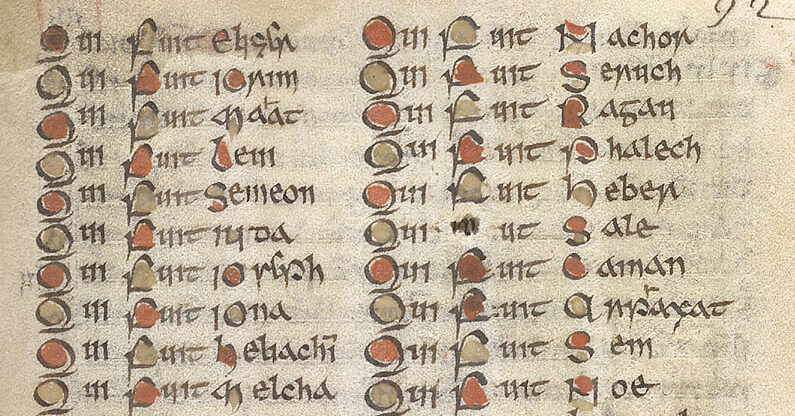 Qui Fuit
Qui Fuit iorim
Qui Fuit
Qui Fuit Leui
Qui Fuit Semeon
Qui Fuit iuda
Qui Fuit ioseph
Qui Fuit iona
Qui Fuit heliachī
Qui Fuit melcha
92
Qui Fuit Nachor
Qui Fuit Seruch
Qui Fuit Ragau
Qui Fuit Phalech
Qui Fuit heber
Qui Sale
Qui Fuit Cainan
Qui Fuit Arphaxat
Qui Fuit Sem
Qui Fuit Noe